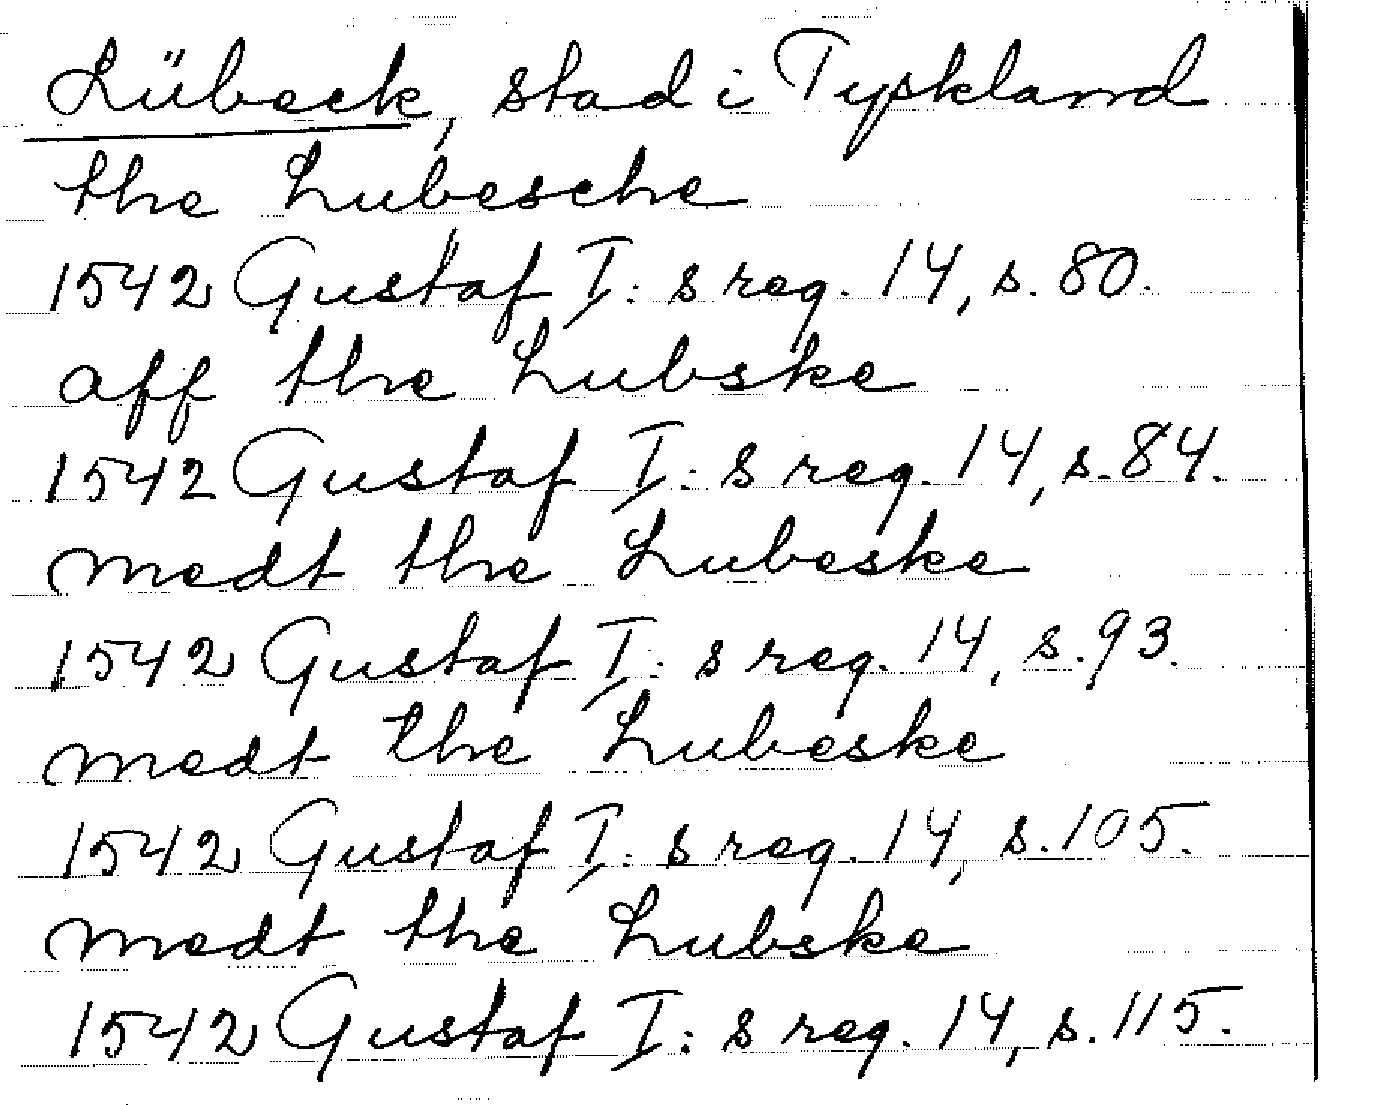 Lübeck, stad i Tyskland
the Lubesche
1542 Gustaf I: s reg. 14, s. 80.
aff the Lubske
1542 Gustaf I: s reg. 14, s. 84.
medt the Lubeske
1542 Gustaf I: s reg. 14, s. 93.
medt the Lubeske
1542 Gustaf I: s reg. 14, s. 105.
medt the Lubske
1542 Gustaf I: s reg. 14, s. 115.